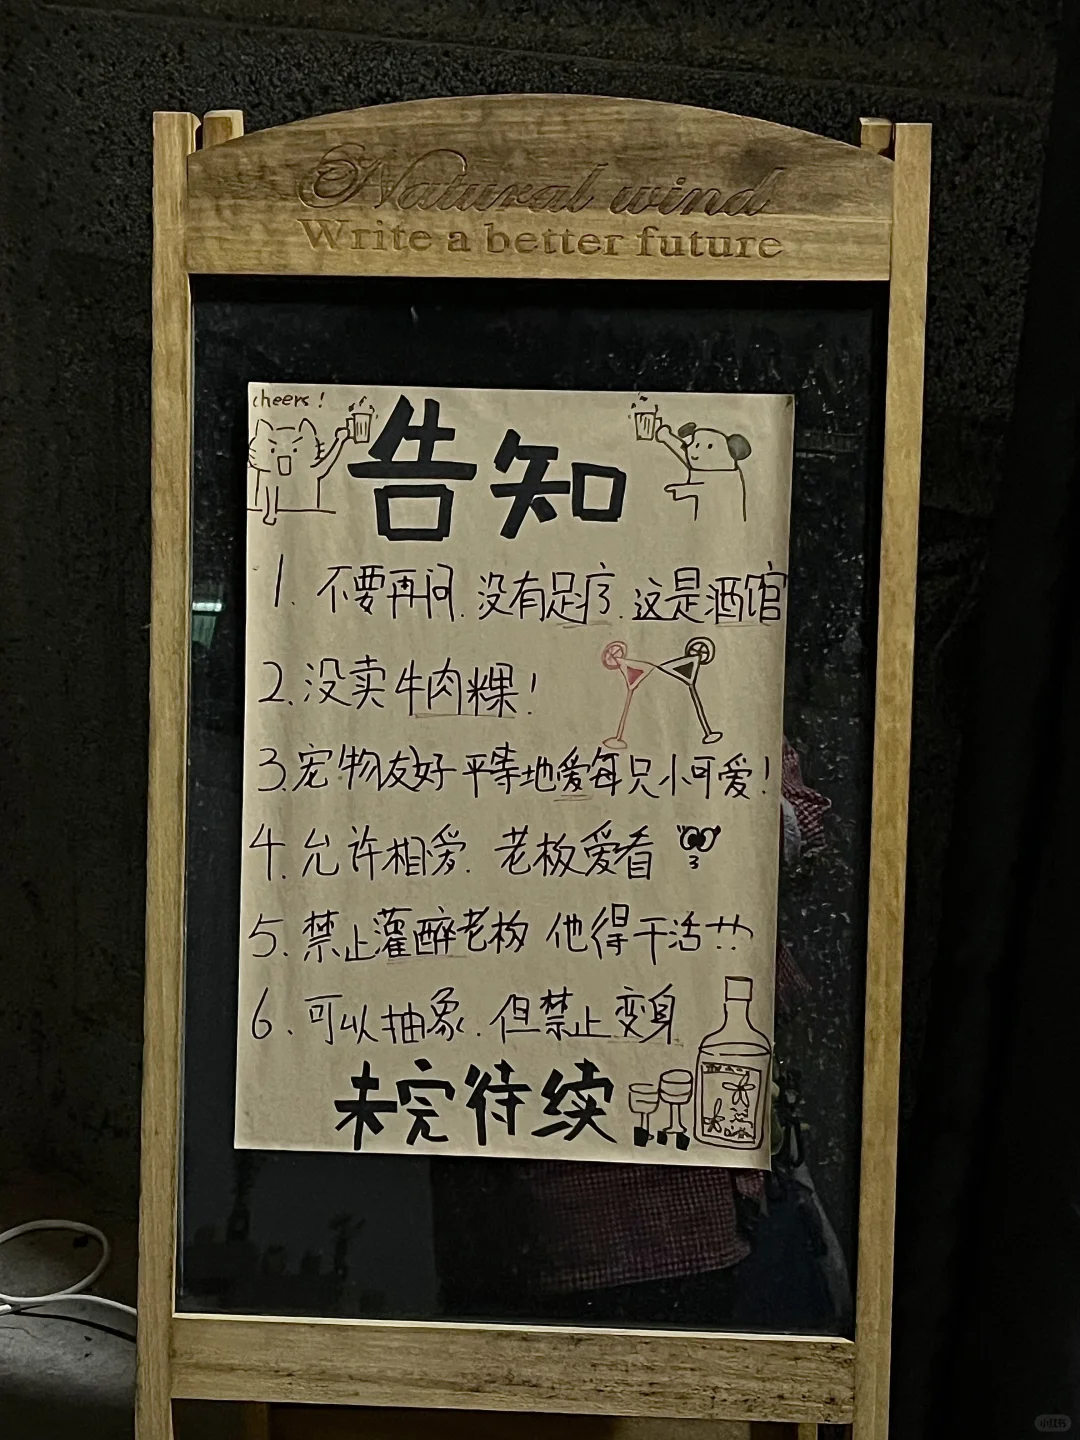 Natural wind
Write a better future
cheers!
告知
1. 不要再问.没有足疗.这是酒馆
2. 没卖牛肉粿!
3. 宠物友好 平等地爱每只小可爱!
4. 允许相爱. 老板爱看
5. 禁止灌醉老板 他得干活
6. 可以抽象.但禁止变身
未完待续...
小红书